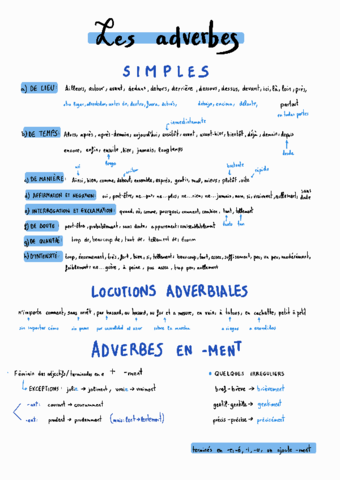 Les adverbes
SIMPLES
a) DE LIEU Ailleurs, autour, avant, dedans, dehors, derrière, dessous, dessus, devant, ici, là, loin, près,
partout
en todas partes
immédiatement
b) DE TEMPS Alors, après, après-demain, aujourd'hui, aussitôt, avant, avant-hier, bientôt, déjà, demain, depuis
encore, enfin, ensuite, hier, jamais, longtemps
luego
desde
c) DE MANIÈRE: Ainsi, bien, comme, debout, ensemble, exprès, gratis, mal, mieux, plutôt, vite
así
bastante
rápido
d) AFFIRMATION ET NÉGATION: oui, peut-être, ne-pas, ne-plus, ne-rien, ne-jamais, non, si, vraiment, sans doute
e) INTERROGATION ET EXCLAMATION: quand, où, comme, pourquoi, comment, combien, tant, tellement
f) DE DOUTE peut-être, probablement, sans doute, apparemment, vraisemblablement
g) DE QUANTITÉ trop de, beaucoup de, tant de, tellement de
h) D'INTENSITÉ: trop, énormément, très, fort, bien, si, tellement, beaucoup, tant, assez, suffisamment, peu, un peu, modérément,
faiblement, ne... guère, à peine, pas assez, trop peu,
LOCUTIONS ADVERBIALES
n'importe comment, sans arrêt, par hasard, au hasard, au fur et à mesure, en vain, à tâtons, en cachette, petit à petit
sin importar cómo sin parar por casualidad al azar sobre la marcha a ciegas a escondidas
ADVERBES EN -MENT
Féminin des adjectifs/terminados en e + -ment
EXCEPTIONS: jolie → joliment, vraie → vraiment
-ant: courant → couramment
-ent: prudent → prudemment (mais: lent → lentement)
QUELQUES IRRÉGULIERS
bref-brève → brièvement
gentil-gentille → gentiment
précis-précise → précisément
terminés en -é, -i, -u: on ajoute -ment